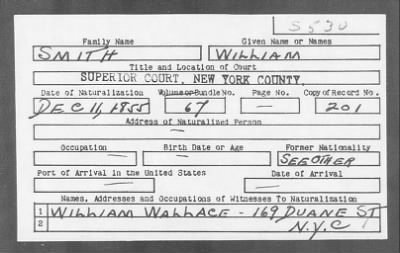 S 530
Family Name Given Name or Names
SMITH WILLIAM
Title and Location of Court
SUPERIOR COURT, NEW YORK COUNTY.
Date of Naturalization Volume or Bundle No. Page No. Copy of Record No.
DEC 11, 1855 67 — 201
Address of Naturalized Person
—
Occupation Birth Date or Age Former Nationality
— — SEE OTHER
Port of Arrival in the United States Date of Arrival
— —
Names, Addresses and Occupations of Witnesses To Naturalization
1 WILLIAM WALLACE - 169 DUANE ST
2 N.Y.C